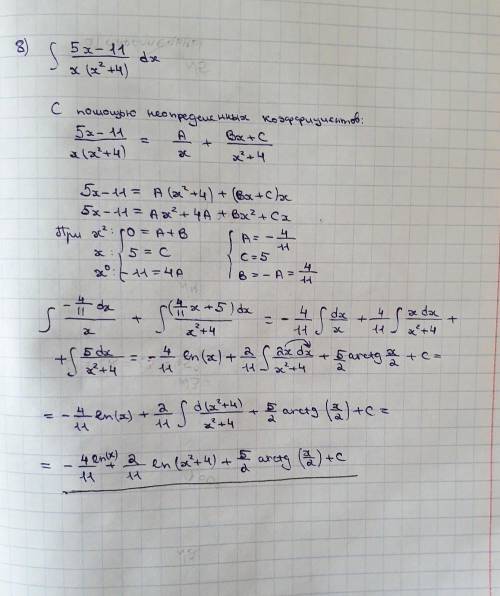 8) ∫ (5x-11)/(x(x²+4)) dx
С помощью неопределенных коэффициентов:
(5x-11)/(x(x²+4)) = A/x + (Bx+C)/(x²+4)
5x-11 = A(x²+4) + (Bx+C)x
5x-11 = Ax²+4A+Bx²+Cx
При x²: { 0 = A+B { A = -4/11
x: { 5 = C { C = 5
x⁰: { -11 = 4A { B = -A = 4/11
∫ (-4/11 dx)/x + ∫ ((4/11 x + 5)dx)/(x²+4) = -4/11 ∫ dx/x + 4/11 ∫ x dx/(x²+4) +
+ ∫ 5dx/(x²+4) = -4/11 ln(x) + 2/11 ∫ 2x dx/(x²+4) + 5/2 arctg x/2 + C =
= -4/11 ln(x) + 2/11 ∫ d(x²+4)/(x²+4) + 5/2 arctg (x/2) + C =
= -4/11 ln(x) + 2/11 ln(x²+4) + 5/2 arctg (x/2) + C